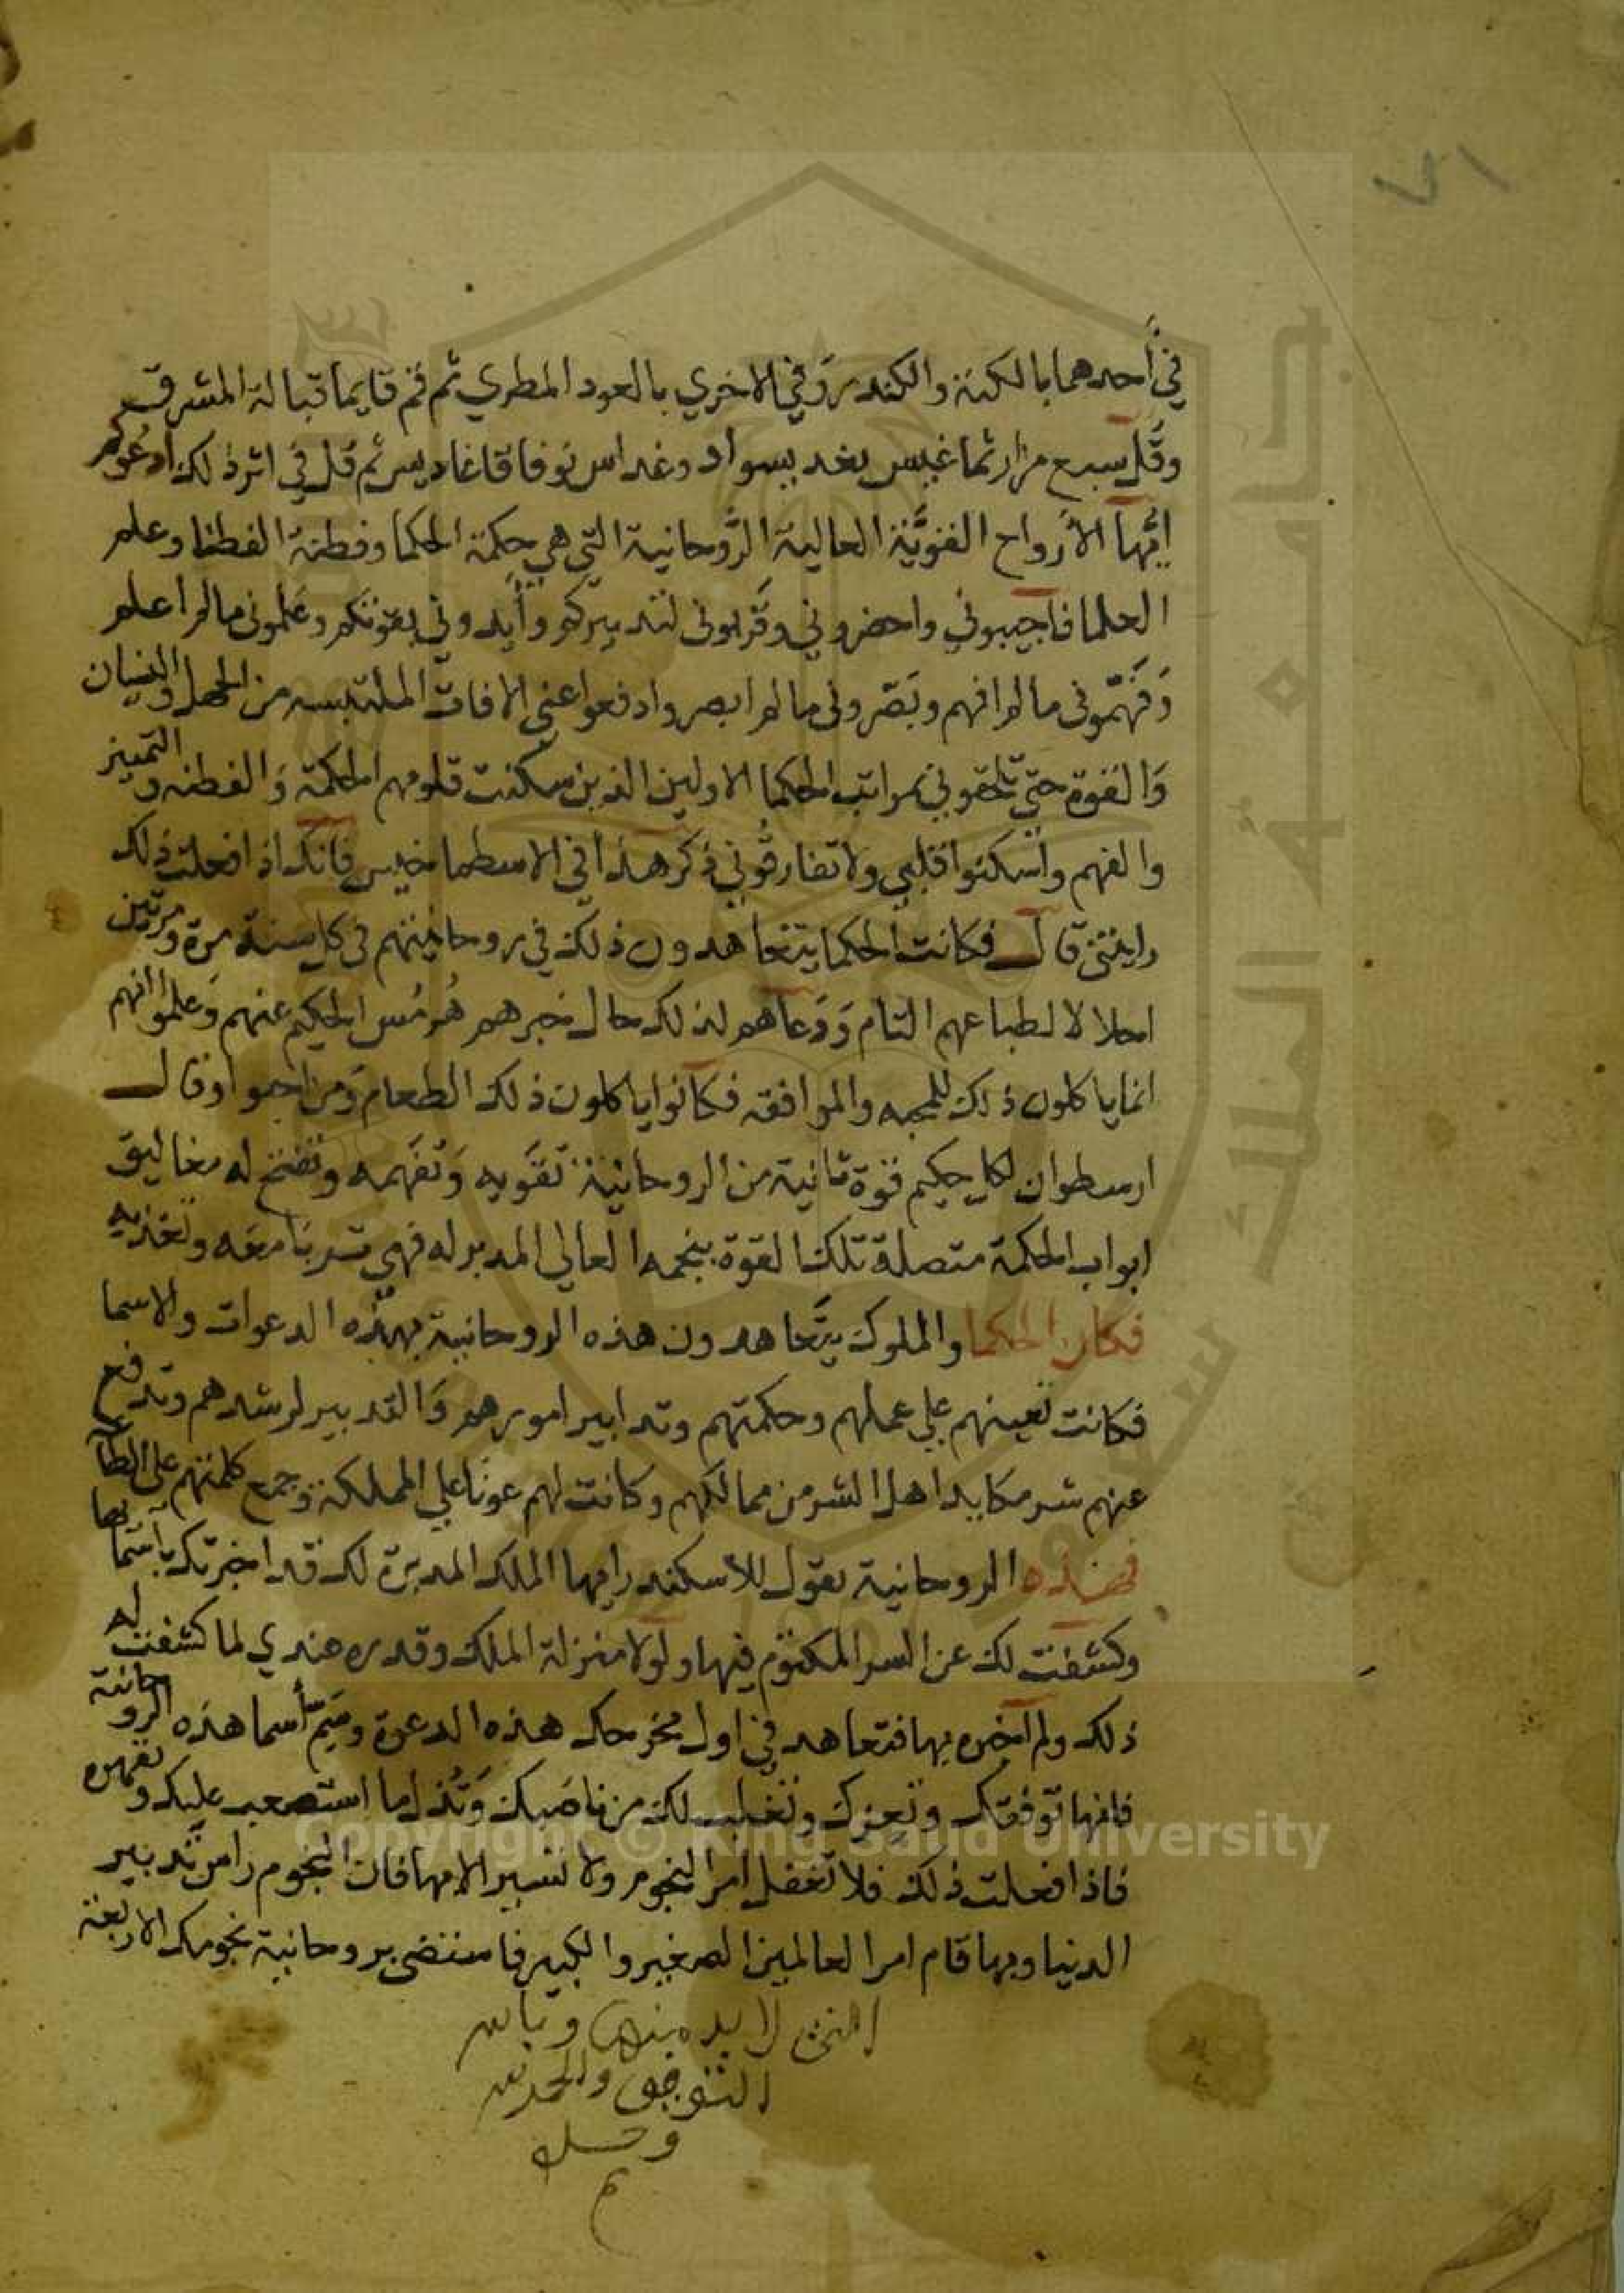 ٧١
في أحدهما بالكنة والكندر وفي الاخري بالعود المطري ثم قم قايما قبالة المشرق
وقل سبع مرار ثماغيس بغد بيسواد وغداس نوفاقا غاديس ثم قل في اثر ذلك ادعوكم
ايتها الأرواح القويّة العالية الرّوحانية التي هي حكمة الحكما وفطنة الفطنا وعلم
العلما فاجيبوني واحضروني وقربوني لتدبيركم وأيدوني بقوتكم وعلموني مالم اعلم
وَفهّموني مالم افهم وبَصّروني مالم ابصر وادفعوا عني الافات الملتبسه من الجهل والنسيان
وَالقوة حتي تلحقوني بمراتب الحكما الاولين الذين سكنت قلوبهم الحكمة وَالفطنه والتمييز
والفهم واسكنوا قلبي ولا تفارقوني ذكر هذا في الاسطماخيس فانك اذا فعلت ذلك
رايتني قال فكانت الحكما يتعاهدون ذلك في روحانيتهم في كل سنة مرة ومرتين
اصلاحا لطباعهم التام وَدعاهم لذلك حال خبرهم هُرمُس الحكيم عنهم وَعلموا انهم
انما ياكلون ذلك للمحبه والموافقه فكانوا ياكلون ذلك الطعام وَمن احبوا وقال
ارسطو ان لكل حكيم قوة ثانية من الروحانية تقوَيه وَتفَهمه وتفتح له مغاليق
ابواب الحكمة متصلة تلك القوة بنجمه العالي المدبر له فهي تتربا معَه وتغذيه
فكان الحكما والملوك يتَعاهدون هذه الروحانية بهذه الدعوات والاسما
فكانت تعينهم علي عملهم وحكمتهم وتدابير امورهم وَالتدبير لرشدهم وتدفع
عنهم شر مكايد اهل الشر من ممالكهم وكانت لهم عونًا علي المملكة وجمع كلمتهم على الطاعة
فهذه الروحانية يقول للأسكندر ايها الملك المدبرة لك قد اخبرتك باسمايها
وكشفت لك عن السر المكتوم فيها ولولا منزلة الملك وقدره عندي لما كشفت له
ذلك ولم اخبره بها فتعاهد في اول مخرجك هذه الدعوة وسَمّ أسما هذه الروحانية
فانها توفقك وتعزك وتغلب لك من ناصَبك وَتُذل ما استصعب عليك وتقهره
فاذا فعلت ذلك فلا تغفل امر النجوم ولا تسير الا بها فان النجوم زامن تدبير
الدنيا وبها قام امر العالمين الصغير والكبير فاستضى بروحانية نجومك الاربعة
التي لا بد منها وبالله
التوفيق والحمد لله
وحسبك
م
جامعة الملك سعود
Copyright © King Saud University